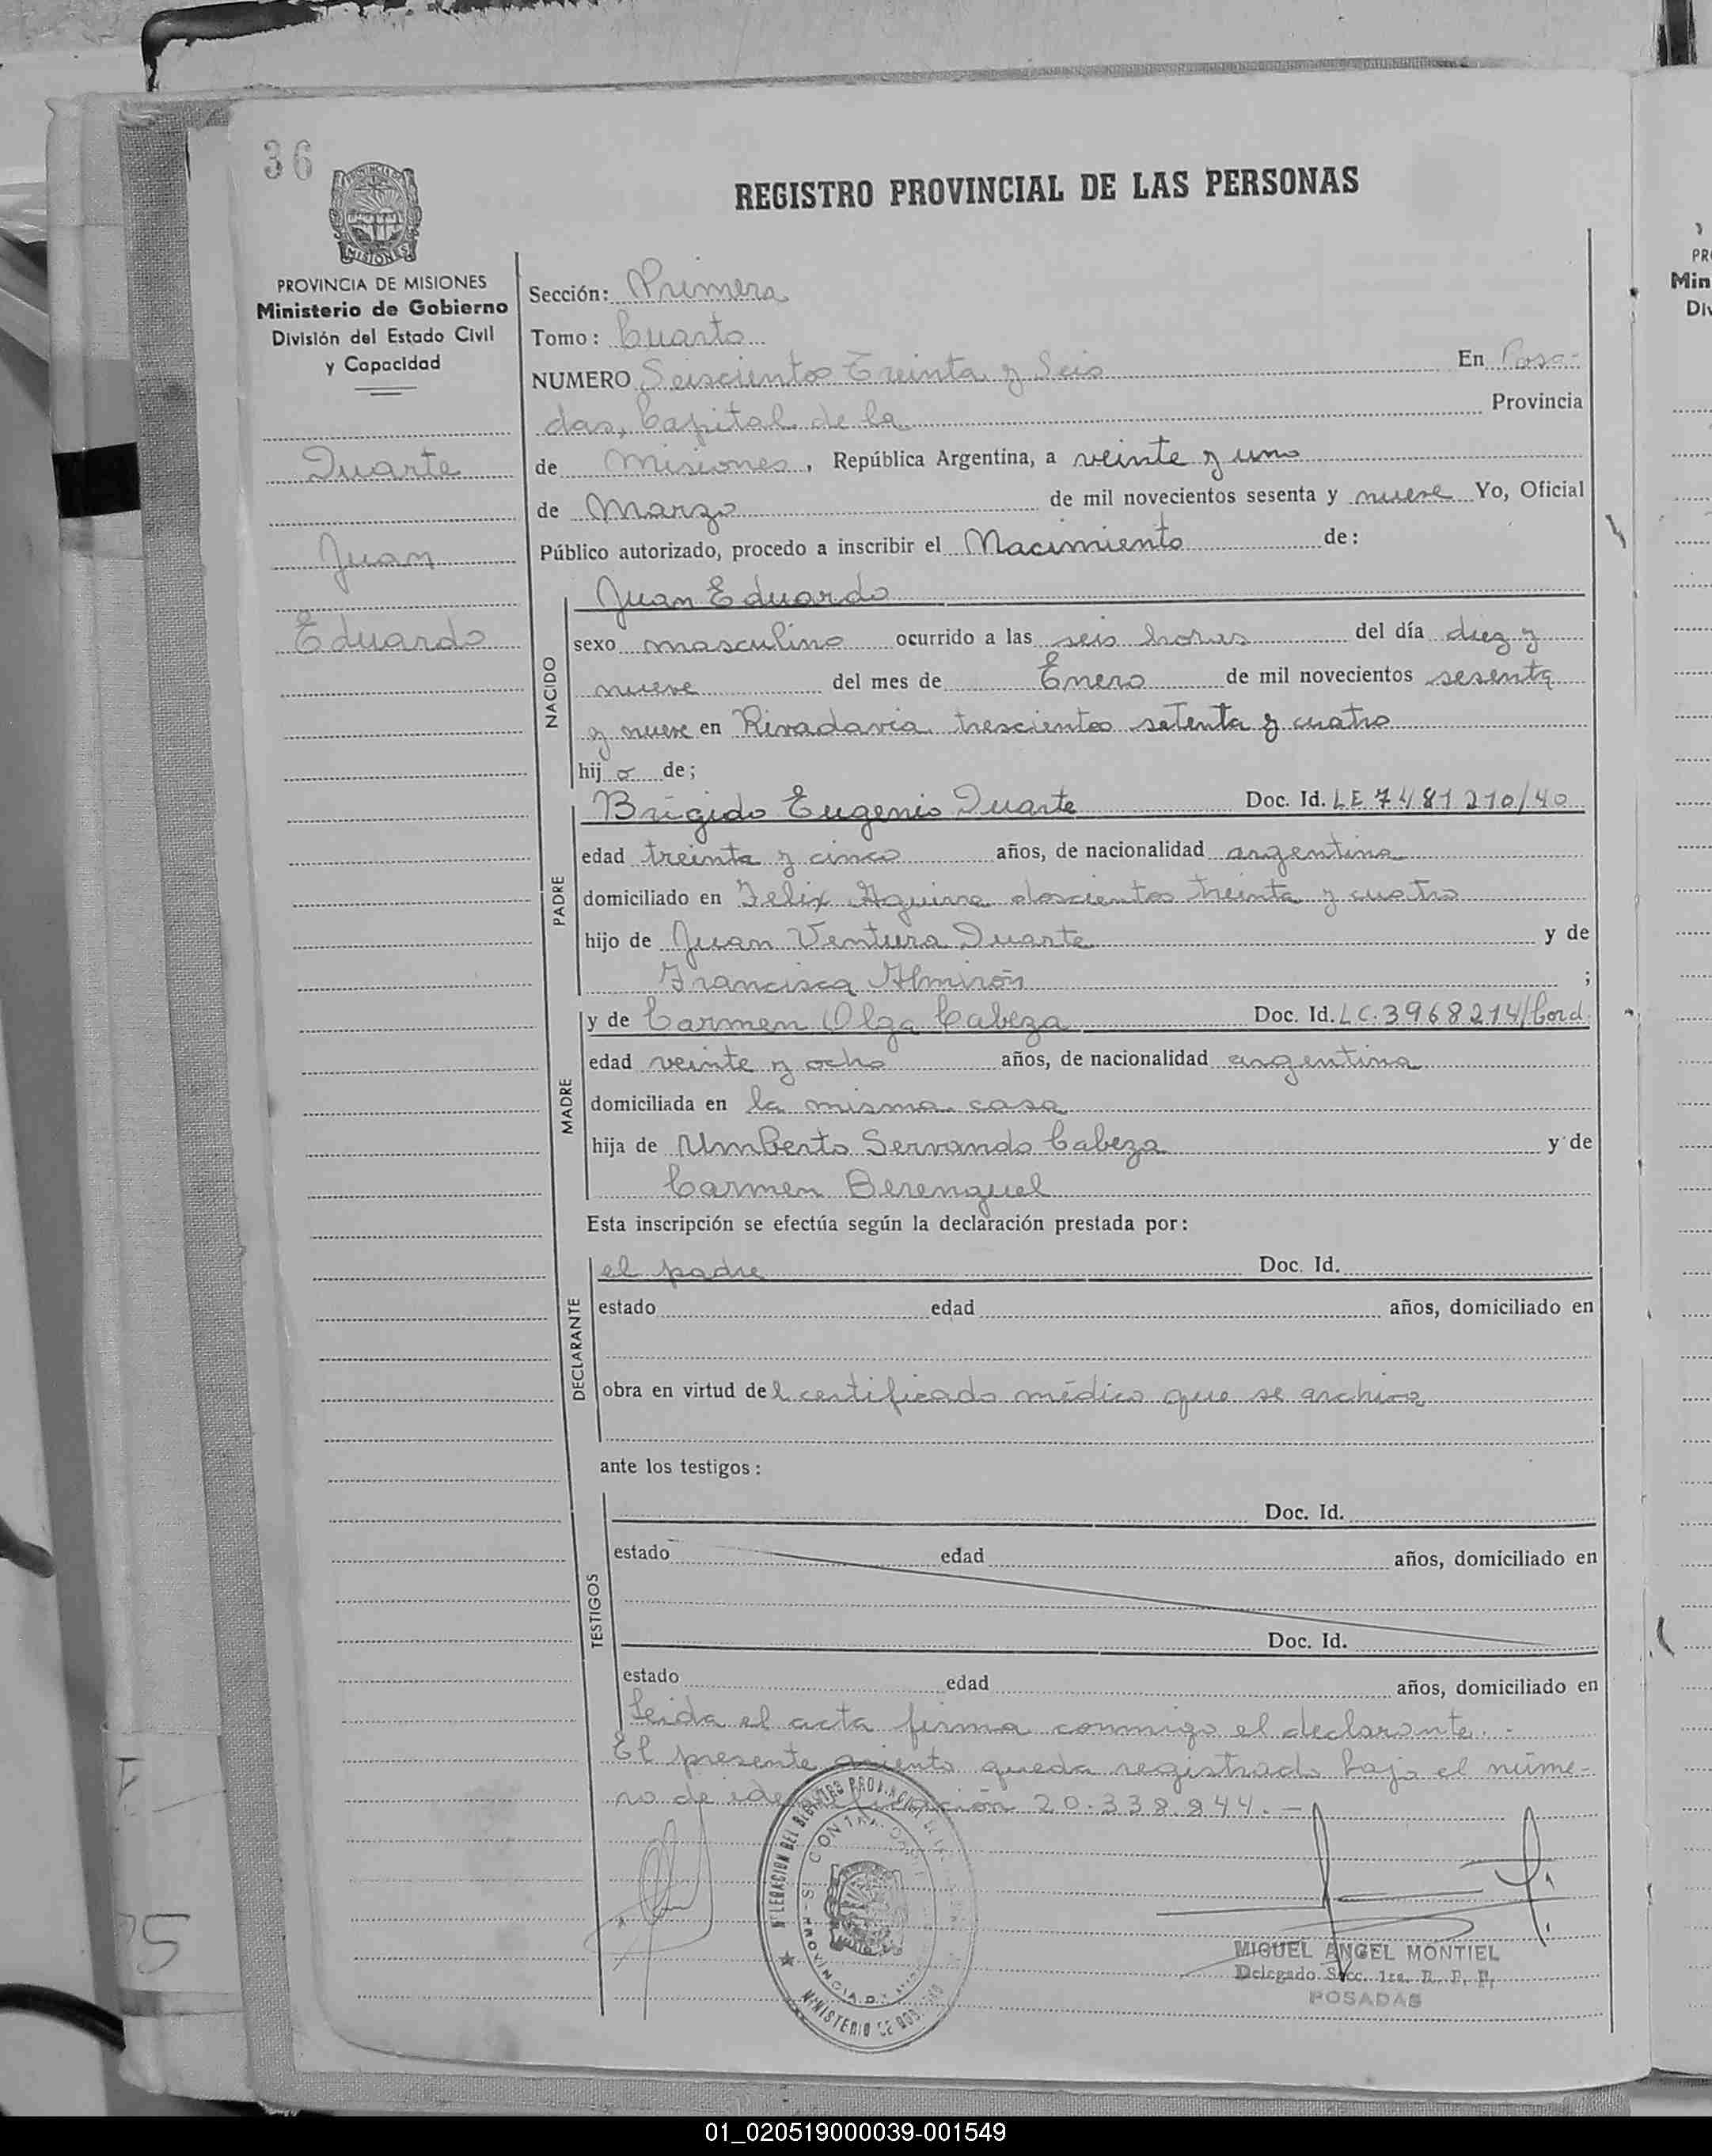 36
REGISTRO PROVINCIAL DE LAS PERSONAS
MISIONES
PROVINCIA DE MISIONES
Ministerio de Gobierno
División del Estado Civil
y Capacidad
Duarte
Juan
Eduardo
Sección: Primera
Tomo: Cuarto
NUMERO Seiscientos Treinta y Seis En Posa-
das, Capital de la Provincia
de Misiones, República Argentina, a veinte y uno
de Marzo de mil novecientos sesenta y nueve Yo, Oficial
Público autorizado, procedo a inscribir el Nacimiento de:
NACIDO
Juan Eduardo
sexo masculino ocurrido a las seis horas del día diez y
nueve del mes de Enero de mil novecientos sesenta
y nueve en Rivadavia trescientos setenta y cuatro
hijo de;
PADRE
Brigido Eugenio Duarte Doc. Id. LE 7481210/40
edad treinta y cinco años, de nacionalidad argentina
domiciliado en Felix Aguirre doscientos treinta y cuatro
hijo de Juan Ventura Duarte y de
Francisca Almirón ;
MADRE
y de Carmen Olga Cabeza Doc. Id. LC. 3968214/Cord.
edad veinte y ocho años, de nacionalidad argentina
domiciliada en la misma casa
hija de Umberto Servando Cabeza y de
Carmen Berenguel
Esta inscripción se efectúa según la declaración prestada por:
DECLARANTE
el padre Doc. Id.
estado edad años, domiciliado en
obra en virtud del certificado médico que se archiva
ante los testigos:
TESTIGOS
Doc. Id.
estado edad años, domiciliado en
Doc. Id.
estado edad años, domiciliado en
Leida el acta firma conmigo el declarante. -
El presente asiento queda registrado bajo el núme-
ro de identificación 20.338.844. -
MIGUEL ANGEL MONTIEL
Delegado Secc. 1ra. R. P. P.
POSADAS
PR
Min
Div
01_020519000039-001549